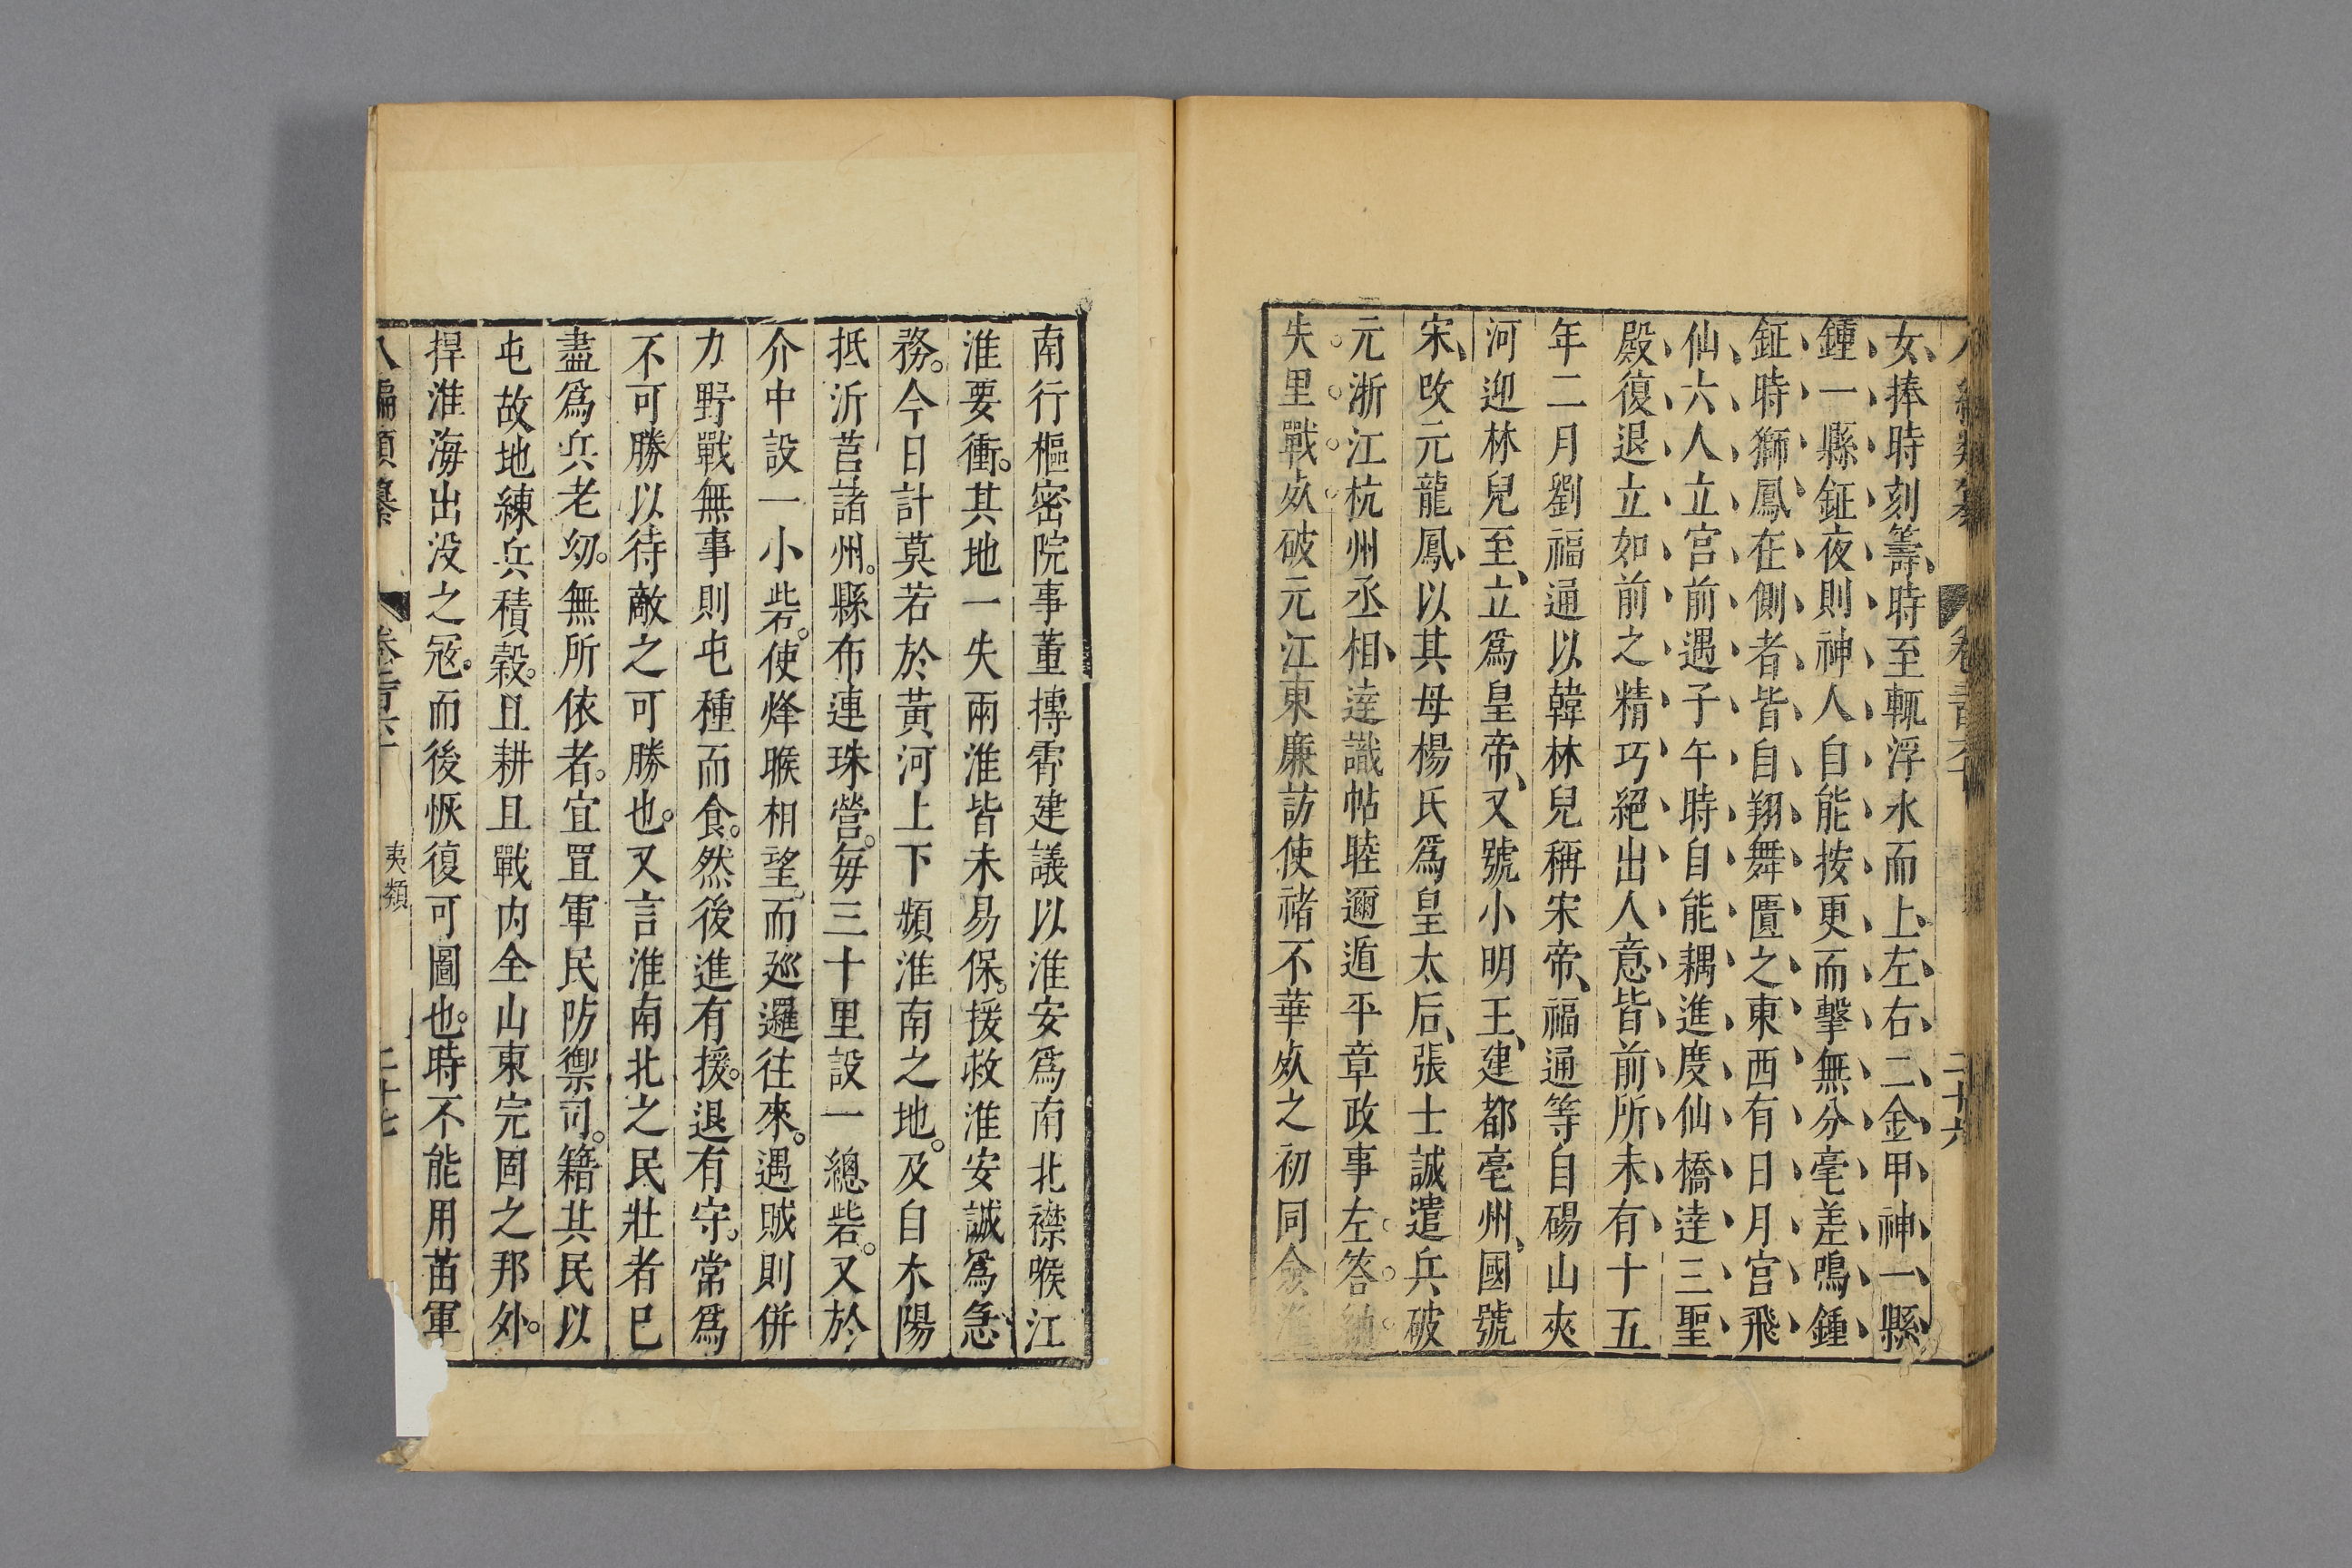 女捧時刻籌時至輒浮水而上左右二金甲神一縣
鍾一縣鉦夜則神人自能按更而擊無分毫差鳴鍾
鉦時獅鳳在側者皆自翔舞匱之東西有日月宮飛
仙六人立宮前遇子午時自能耦進度仙橋逹三聖
殿復退立如前之精巧絕出人意皆前所未有十五
年二月劉福通以韓林兒稱宋帝福通等自碭山夾
河迎林兒至立爲皇帝又號小明王建都亳州國號
宋改元龍鳳以其母楊氏爲皇太后張士誠遣兵破
元浙江杭州丞相逹識帖睦邇遁平章政事左答納
失里戰死破元江東廉訪使褚不華死之初同僉淮
南行樞密院事董摶霄建議以淮安爲南北襟喉江
淮要衝其地一失兩淮皆未易保援救淮安誠爲急
務今日計莫若於黃河上下瀕淮南之地及自朩陽
抵沂莒諸州縣布連珠營每三十里設一總砦又於
介中設一小砦使烽堠相望而廵邏往來遇賊則併
力野戰無事則屯種而食然後進有援退有守常爲
不可勝以待敵之可勝也又言淮南北之民壯者已
盡爲兵老幼無所依者宜置軍民防禦司籍其民以
屯故地練兵積穀且耕且戰内全山東完固之邦外
捍淮海出没之冦而後恢復可圖也時不能用苗軍
八編類纂 夷類